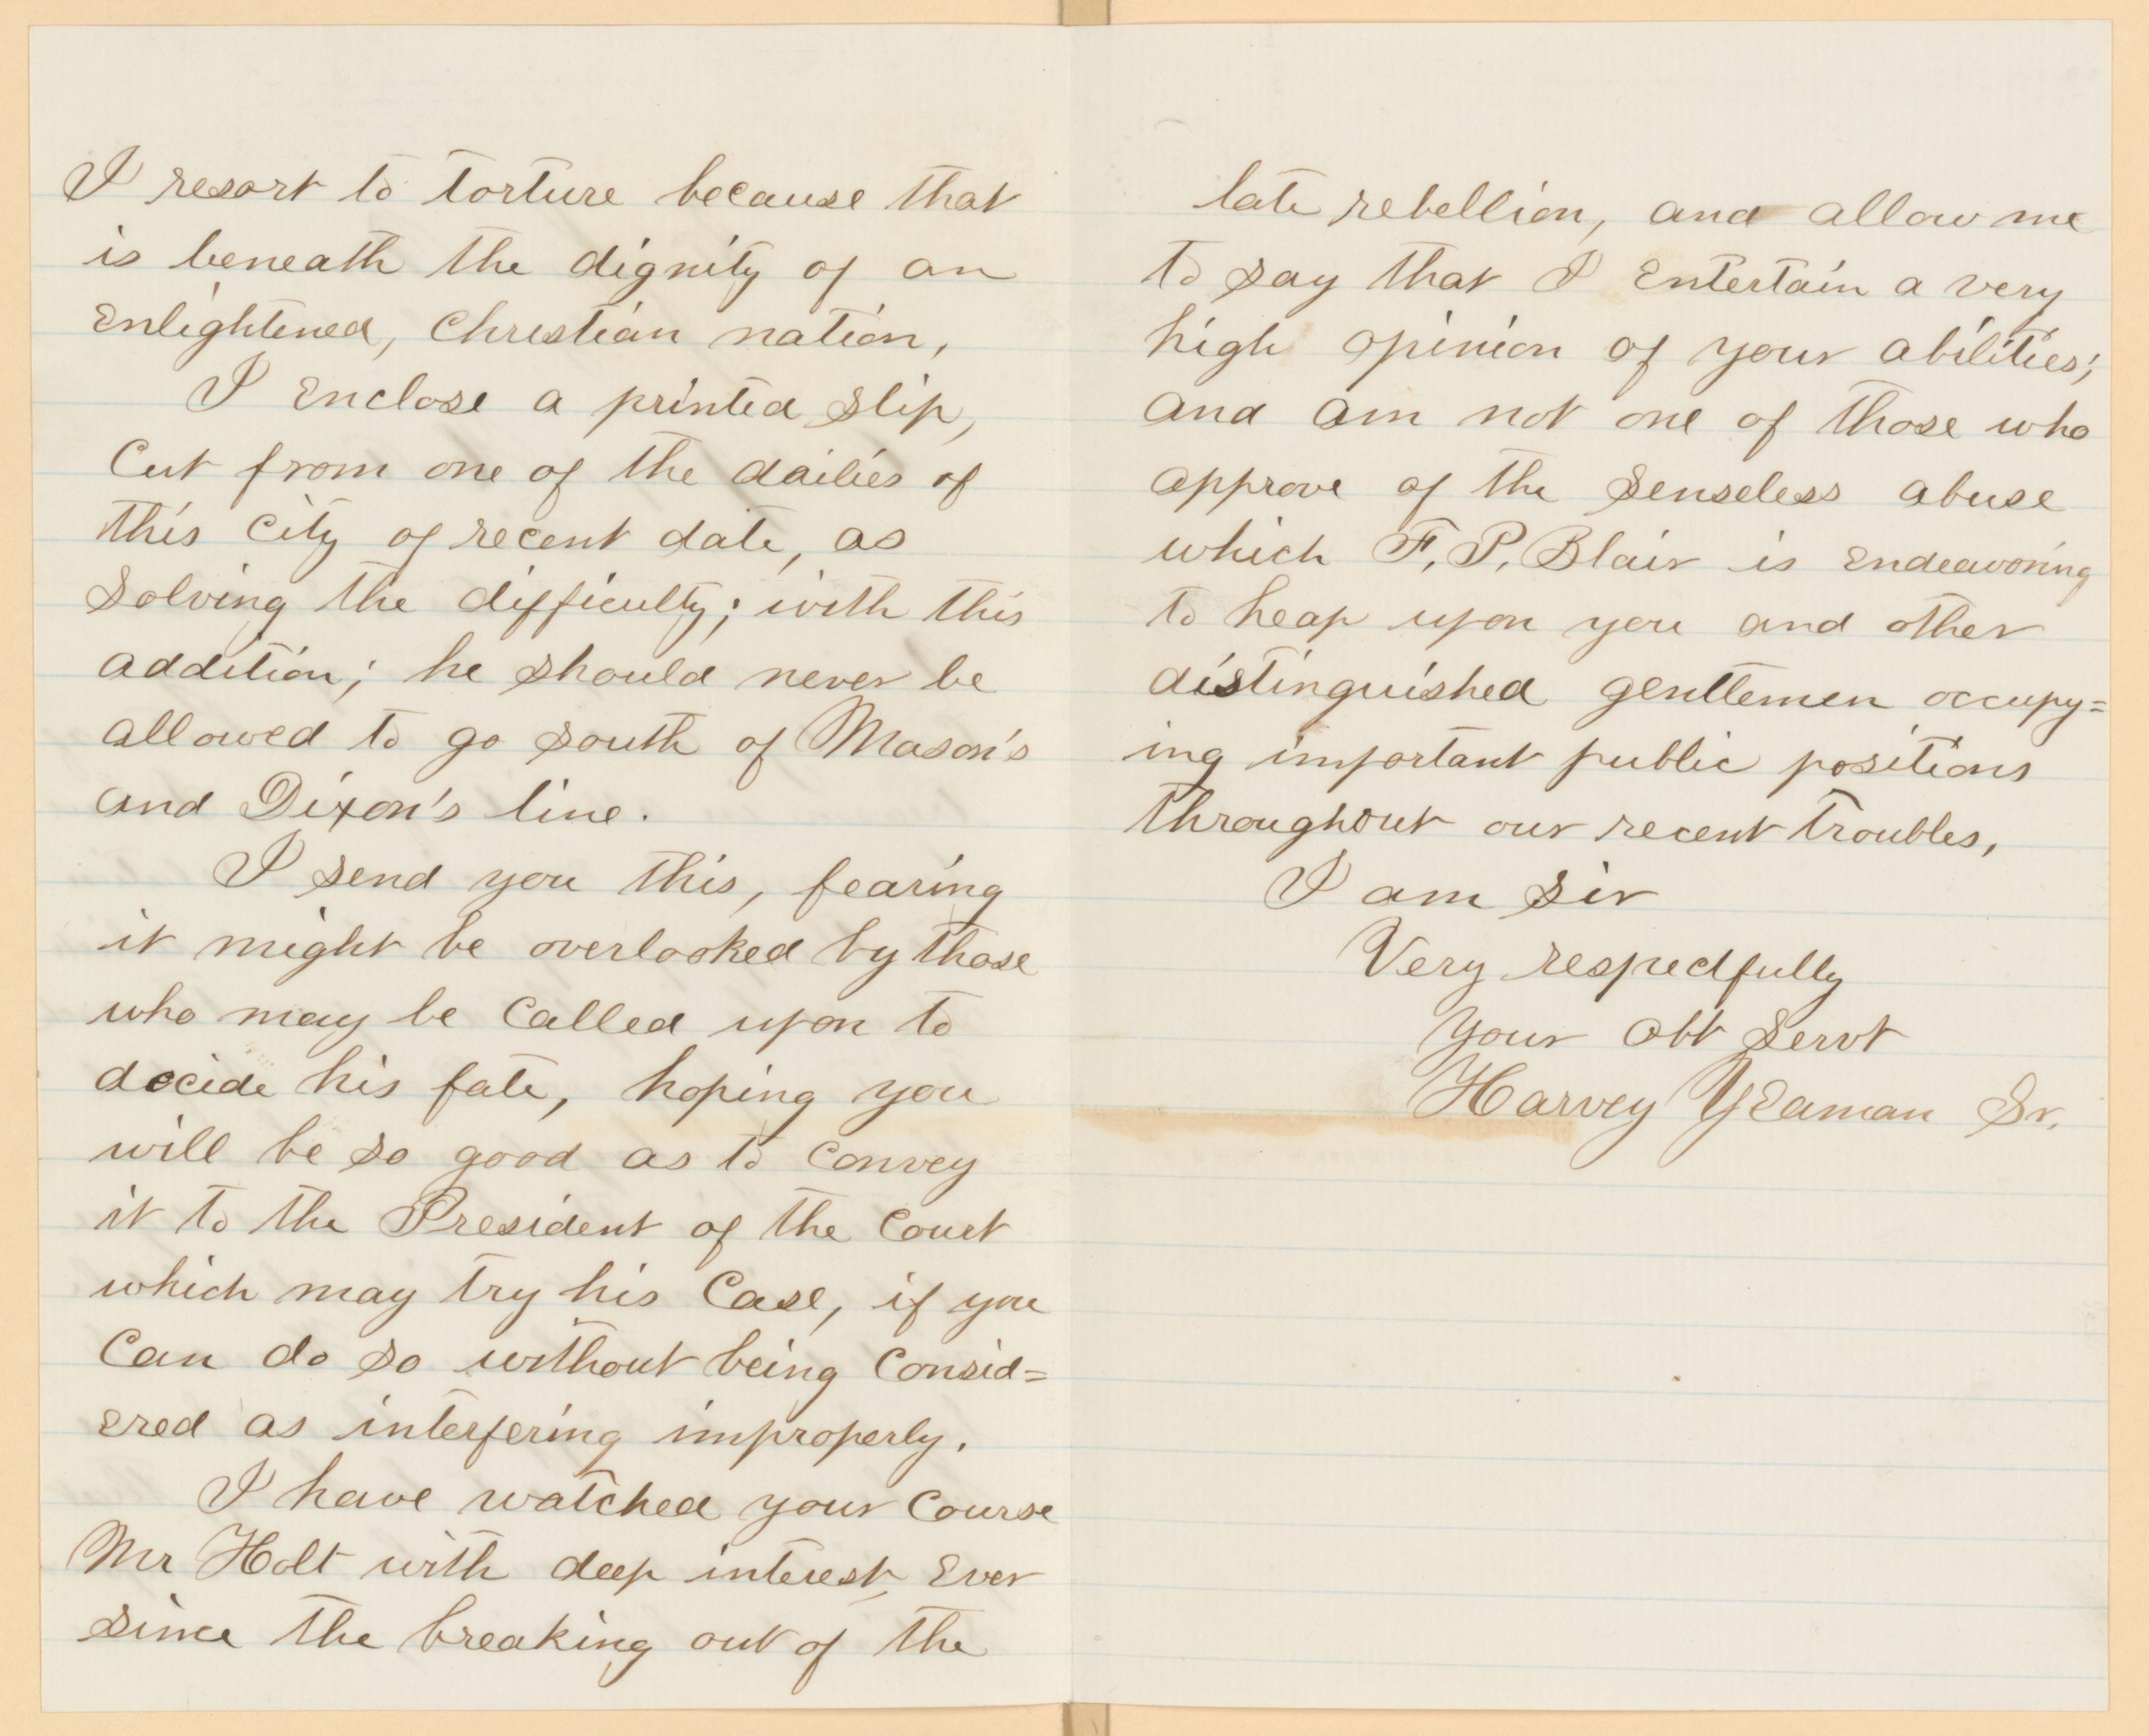 I resort to torture because that
is beneath the dignity of an
Enlightened, Christian nation,
I Enclose a printed slip,
Cut from one of the dailies of
this City of recent date, as
solving the difficulty; with this
addition; he should never be
allowed to go south of Mason's
and Dixon's line.
I send you this, fearing
it might be overlooked by those
who may be Called upon to
decide his fate, hoping you
will be so good as to Convey
it to the President of the Court
which may try his Case, if you
Can do so without being Consid=
ered as interfering improperly.
I have watched your Course
Mr Holt with deep interest, Ever
since the breaking out of the
late rebellion, and allow me
to say that I Entertain a very
high opinion of your abilities;
and am not one of those who
approve of the senseless abuse
which F. P. Blair is Endeavoring
to heap upon you and other
distinguished gentlemen occupy=
ing important public positions
throughout our recent troubles,
I am Sir
Very respectfully
Your Obt Servt
Harvey Yeaman Sr.